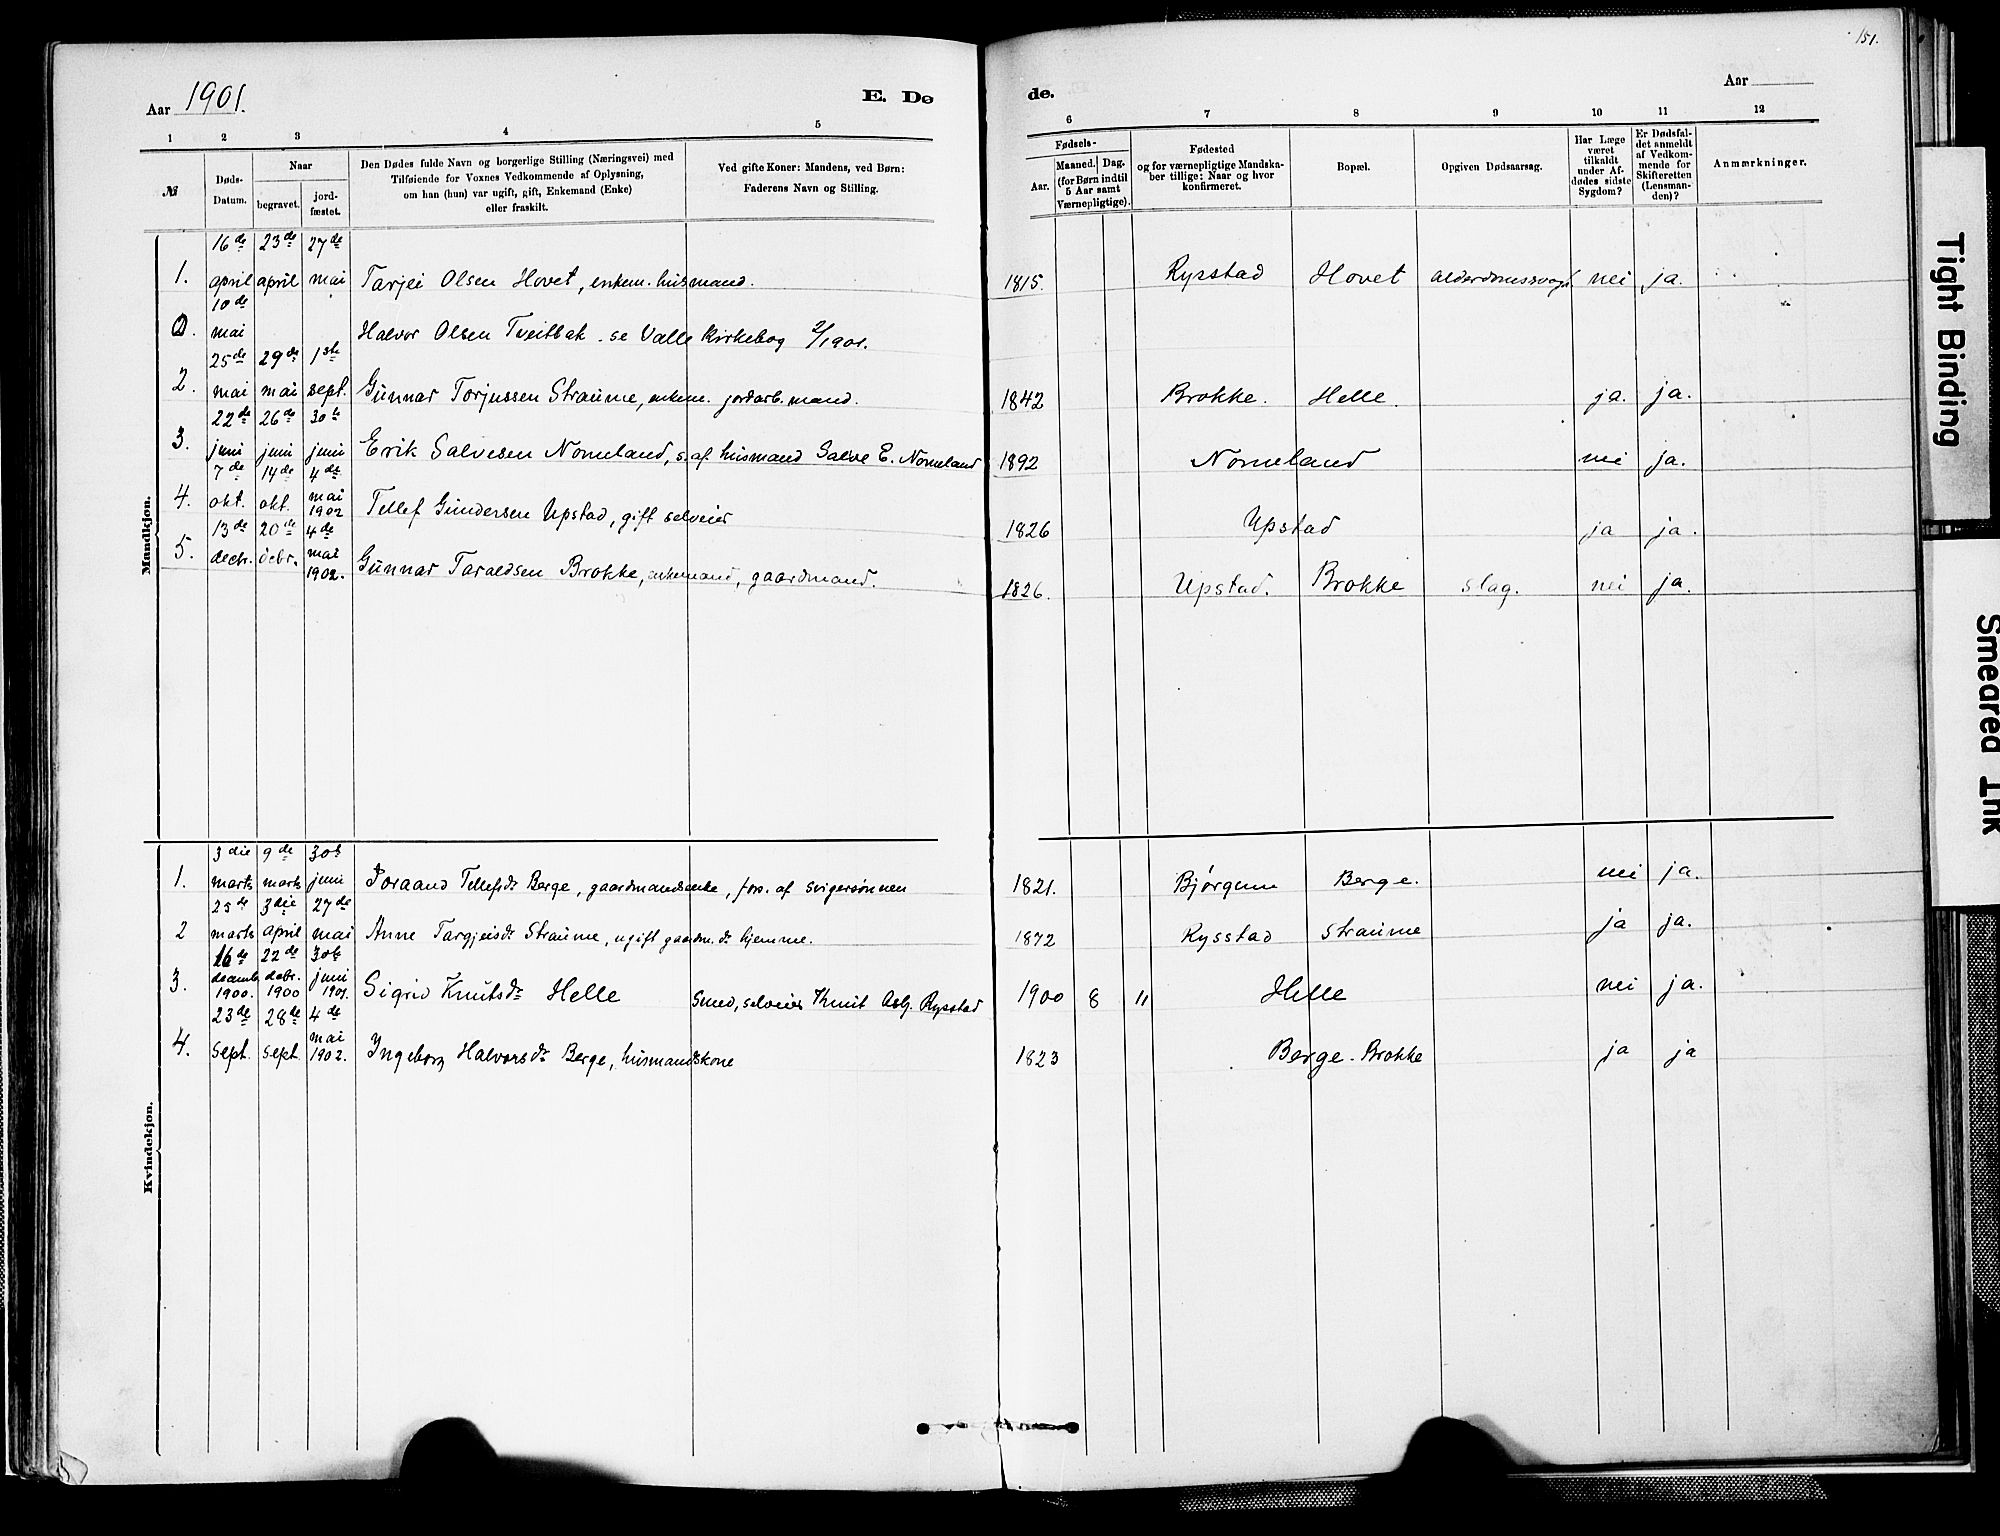 151.
Aar 1901.
E. Dø
de.
Aar
1 2 3 4 5 6 7 8 9 10 11 12
№
Døds-Datum.
Naar
begravet.
jord-fæstet.
Den Dødes fulde Navn og borgerlige Stilling (Næringsvei) med
Tilføiende for Voxnes Vedkommende af Oplysning,
om han (hun) var ugift, gift, Enkemand (Enke)
eller fraskilt.
Ved gifte Koner: Mandens, ved Børn:
Faderens Navn og Stilling.
Fødsels-
Aar.
Maaned. Dag.
(for Børn indtil
5 Aar samt
Værnepligtige).
Fødested
og for værnepligtige Mandska-
ber tillige: Naar og hvor
konfirmeret.
Bopæl.
Opgiven Dødsaarsag.
Har Læge
været
tilkaldt
under Af-
dødes sidste
Sygdom?
Er Dødsfal-
det anmeldt
af Vedkom-
mende for
Skifteretten
(Lensman-
den)?
Anmærkninger.
Mandkjøn.
16de 23de 27de
1. april april mai Tarjei Olsen Hovet, enkem. husmand. 1815. Rysstad Hovet alderdomssvagh. nei ja.
10de
0. mai Halvor Olsen Tveitbak. se Valle kirkebog 2/1901.
25de 29de 1ste
2. mai mai sept. Gunnar Torjussen Straume, enkem. jordarb.mand. 1842 Brokke. Helle. ja. ja.
22de 26de 30te
3. juni juni juni Erik Salvesen Nomeland, s. af husmand Salve E. Nomeland 1892 Nomeland nei ja.
7de 14de 4de
4. okt. okt. mai 1902 Tellef Gundersen Upstad, gift selveier 1826 Upstad ja ja.
13de 20de 4de
5. decbr. debr. mai 1902. Gunnar Taraldsen Brokke, enkemand, gaardmand. 1826. Upstad. Brokke slag. nei ja.
Kvindekjøn.
3die 9de 30te
1. marts marts juni Joraand Tellefsdr Berge, gaardmandsenke, fors. af svigersønnen 1821. Bjørgum Berge. nei ja.
25de 3die 27de
2 marts april mai Anne Targjeisdr Straume, ugift gaardm.dr hjemme. 1872 Rysstad Straume ja ja.
16de 22de 30te
3. decemb. 1900. debr. 1900 juni 1901. Sigrid Knutsdr Helle Smed, selveier Knut Asbj. Rysstad 1900 8 11 Helle nei ja.
23de 28de 4de
4. sept. sept. mai 1902. Ingeborg Halvorsdr Berge, husmandskone 1823 Berge-Brokke ja ja
Tight Binding
Smeared Ink